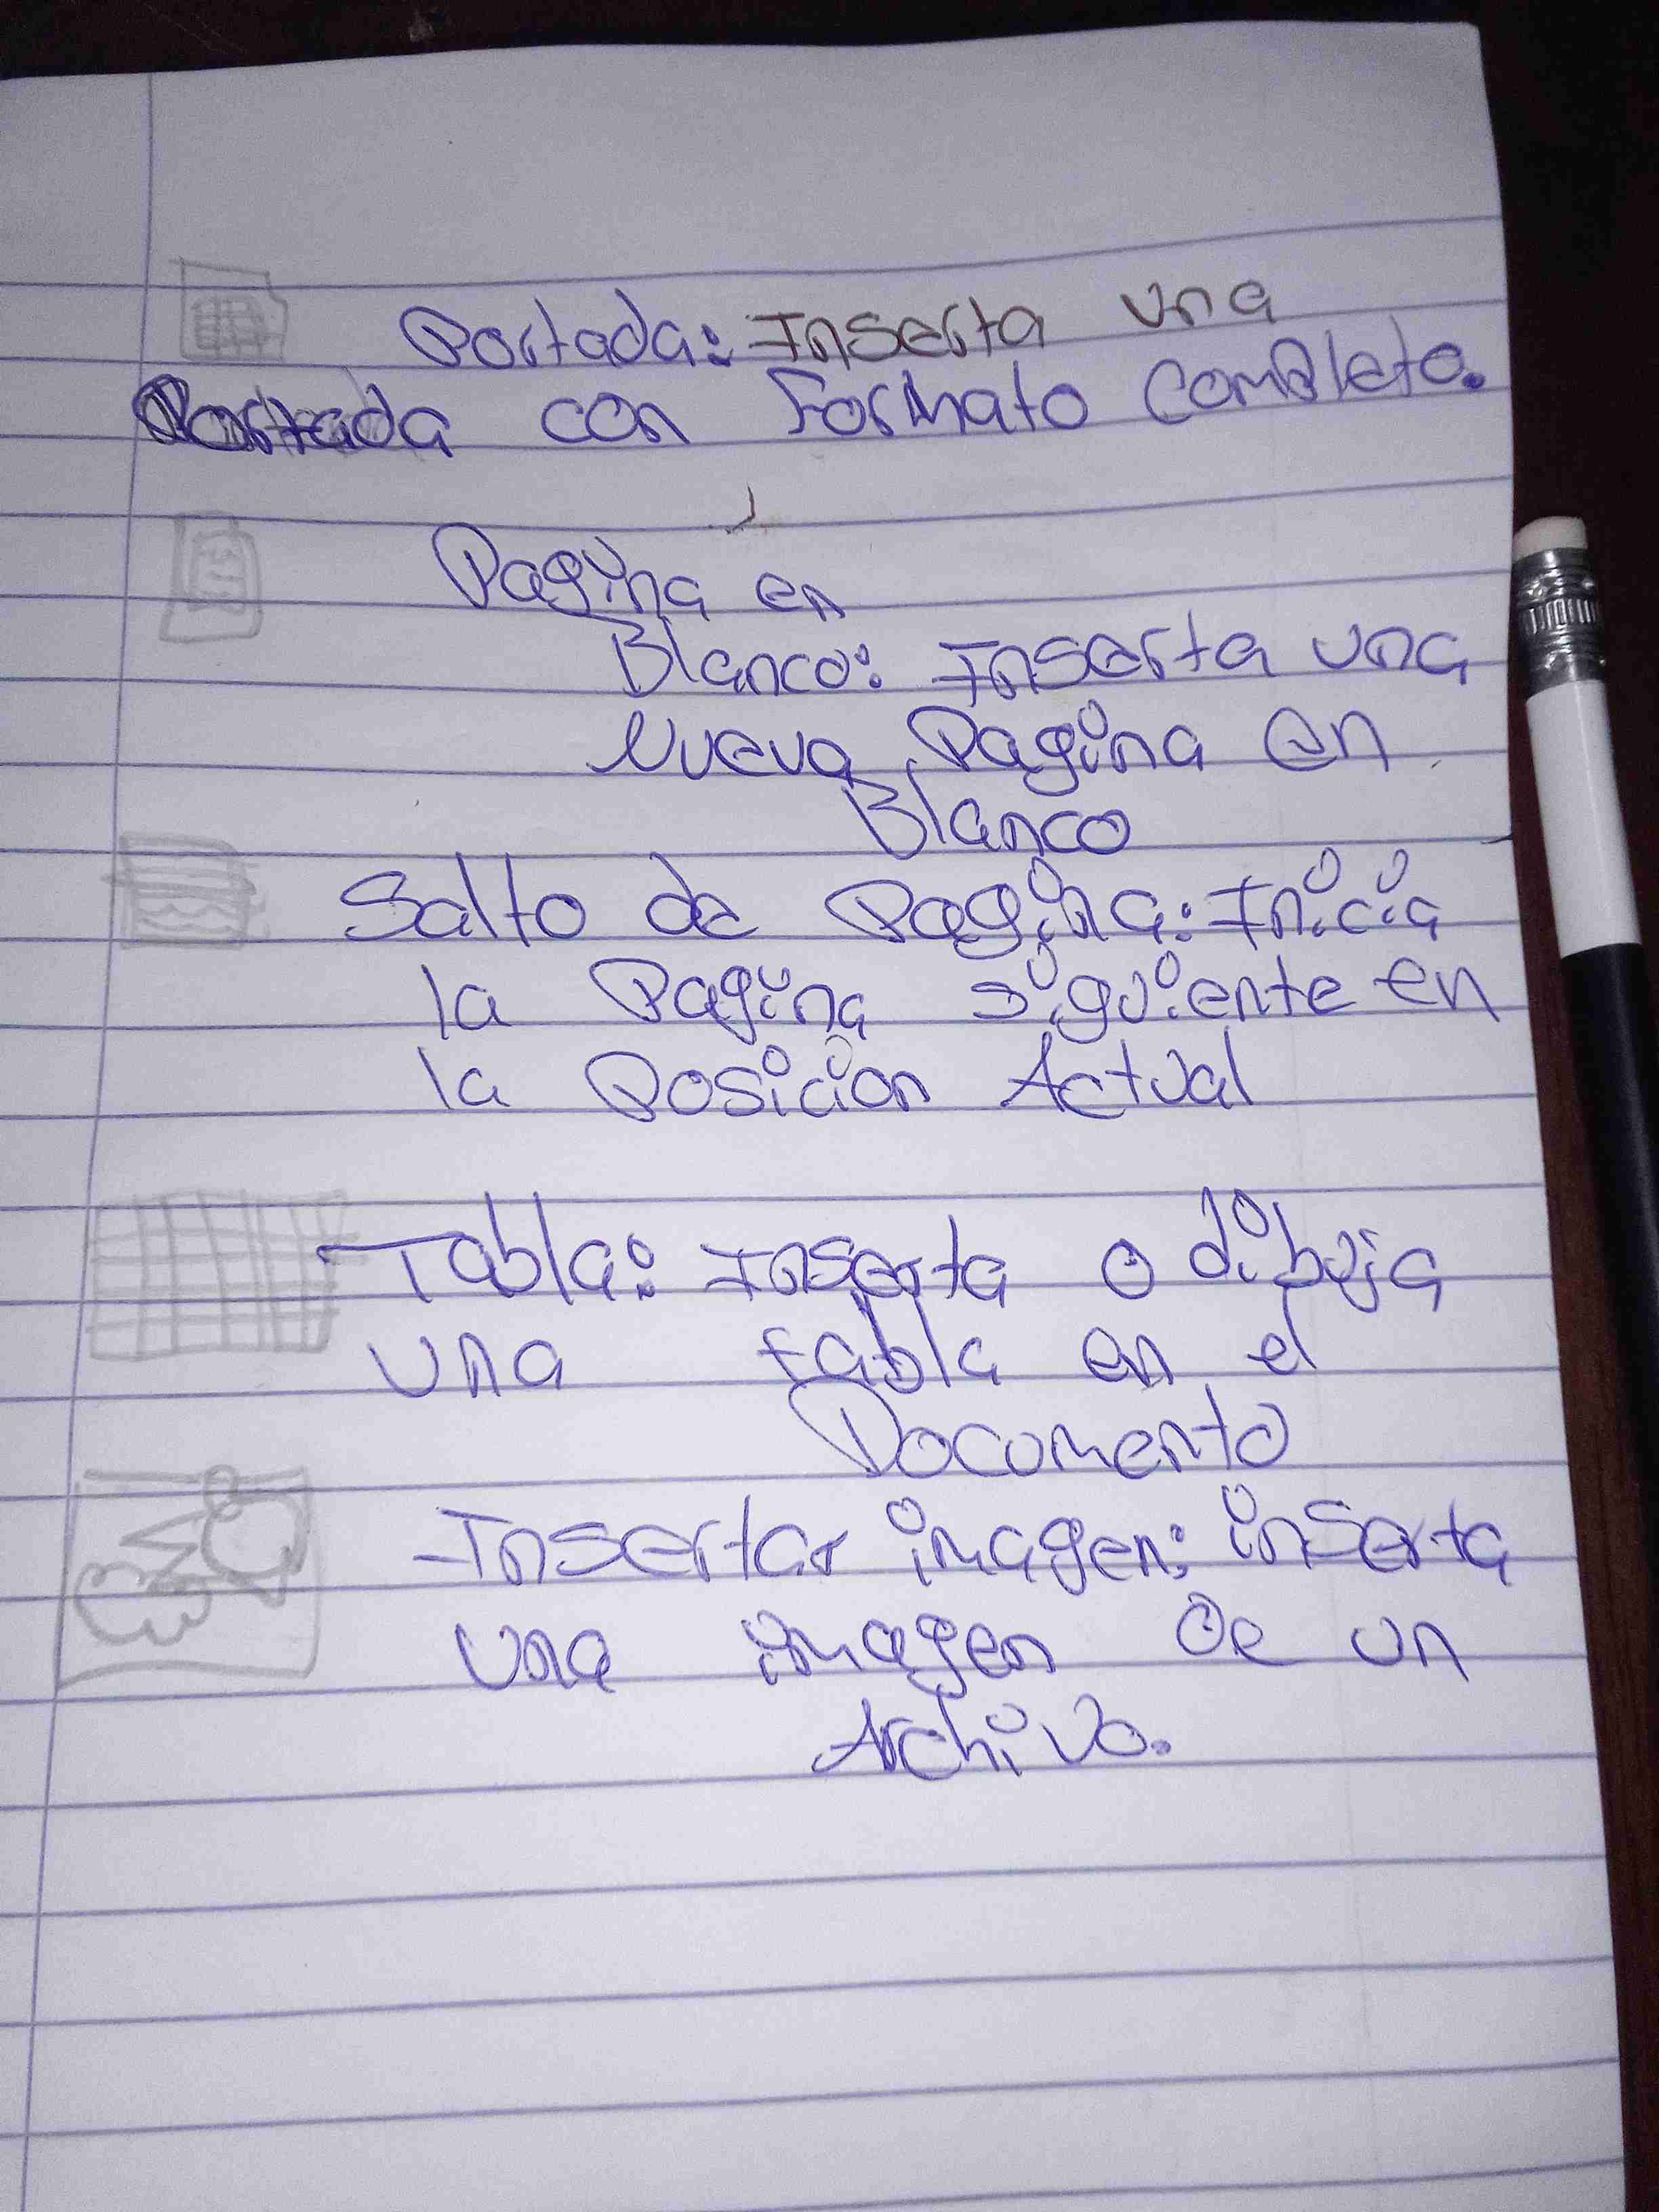 Portada: Inserta una
Portada con Formato Completo.
Pagina en
Blanco: Inserta una
Nueva Pagina en
Blanco
Salto de Pagina: Inicia
la Pagina siguiente en
la Posicion Actual
Tabla: Inserta o dibuja
una tabla en el
Documento
Insertar imagen: inserta
una imagen De un
Archivo.